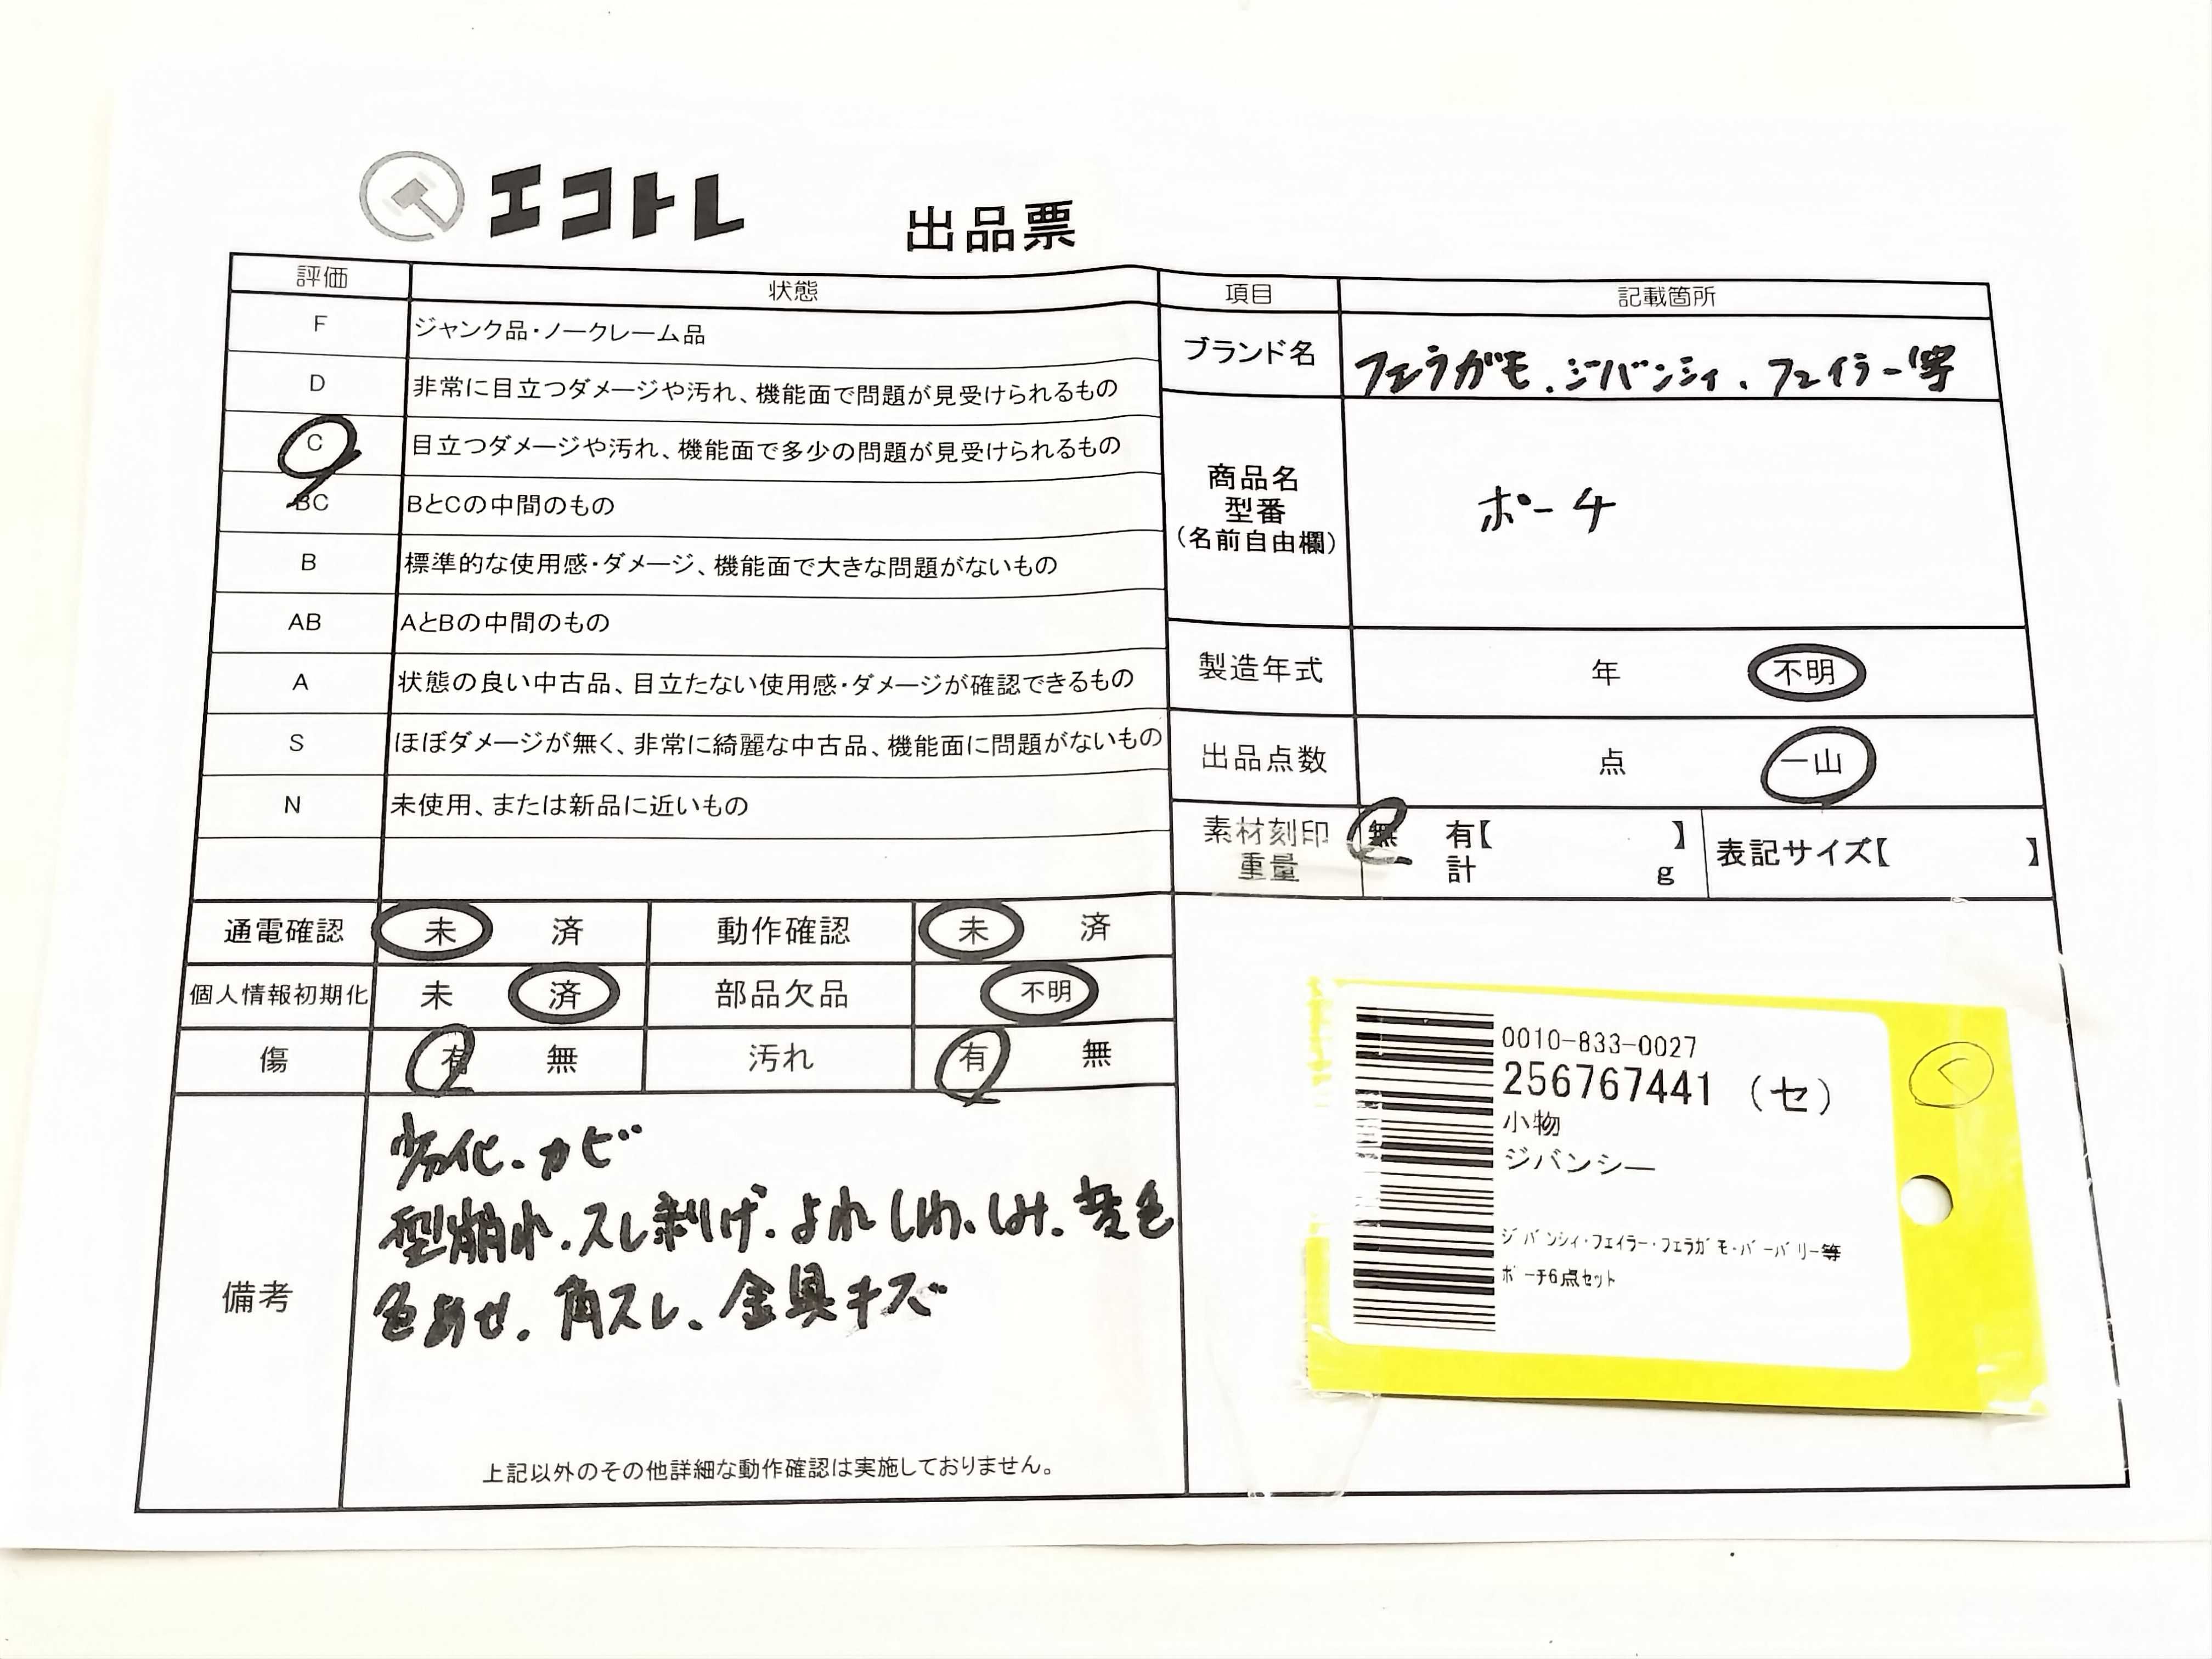 エコトレ
出品票
評価 状態
F ジャンク品・ノークレーム品
D 非常に目立つダメージや汚れ、機能面で問題が見受けられるもの
C 目立つダメージや汚れ、機能面で多少の問題が見受けられるもの
BC BとCの中間のもの
B 標準的な使用感・ダメージ、機能面で大きな問題がないもの
AB AとBの中間のもの
A 状態の良い中古品、目立たない使用感・ダメージが確認できるもの
S ほぼダメージが無く、非常に綺麗な中古品、機能面に問題がないもの
N 未使用、または新品に近いもの
通電確認 未 済 動作確認 未 済
個人情報初期化 未 済 部品欠品 不明
傷 有 無 汚れ 有 無
備考
劣化、カビ
型崩れ、スレ剥げ、よれ しわ、しみ、変色
色あせ、角スレ、金具キズ
上記以外のその他詳細な動作確認は実施しておりません。
項目 記載箇所
ブランド名 フェラガモ、ジバンシィ、フェイラー等
商品名
型番
(名前自由欄)
ポーチ
製造年式 年 不明
出品点数 点 一山
素材刻印 無 有【 】
重量 計 g
表記サイズ【 】
0010-833-0027
256767441 (セ)
小物
ジバンシー
ジバンシィ・フェイラー・フェラガモ・バーバリー等
ポーチ6点セット
C